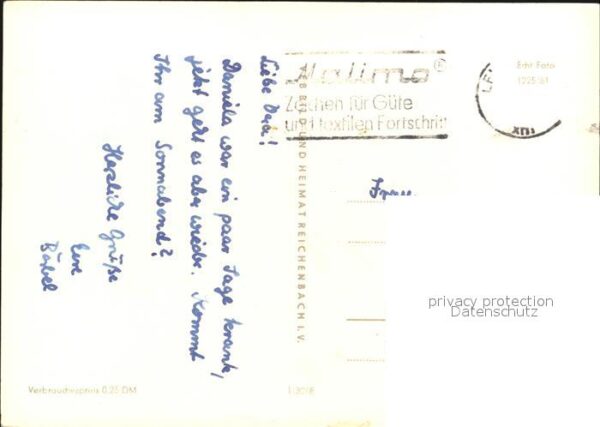 Liebe Dada!
Daniela war ein paar Tage krank,
jetzt geht es aber wieder. Kommt
Ihr am Sonnabend?
Herzliche Grüße
Eure
Bärbel
Malimo®
Zeichen für Güte
und textilen Fortschritt
Echt Foto
VEB BILD UND HEIMAT REICHENBACH I.V.
privacy protection
Datenschutz
Verbraucherpreis 0,25 DM